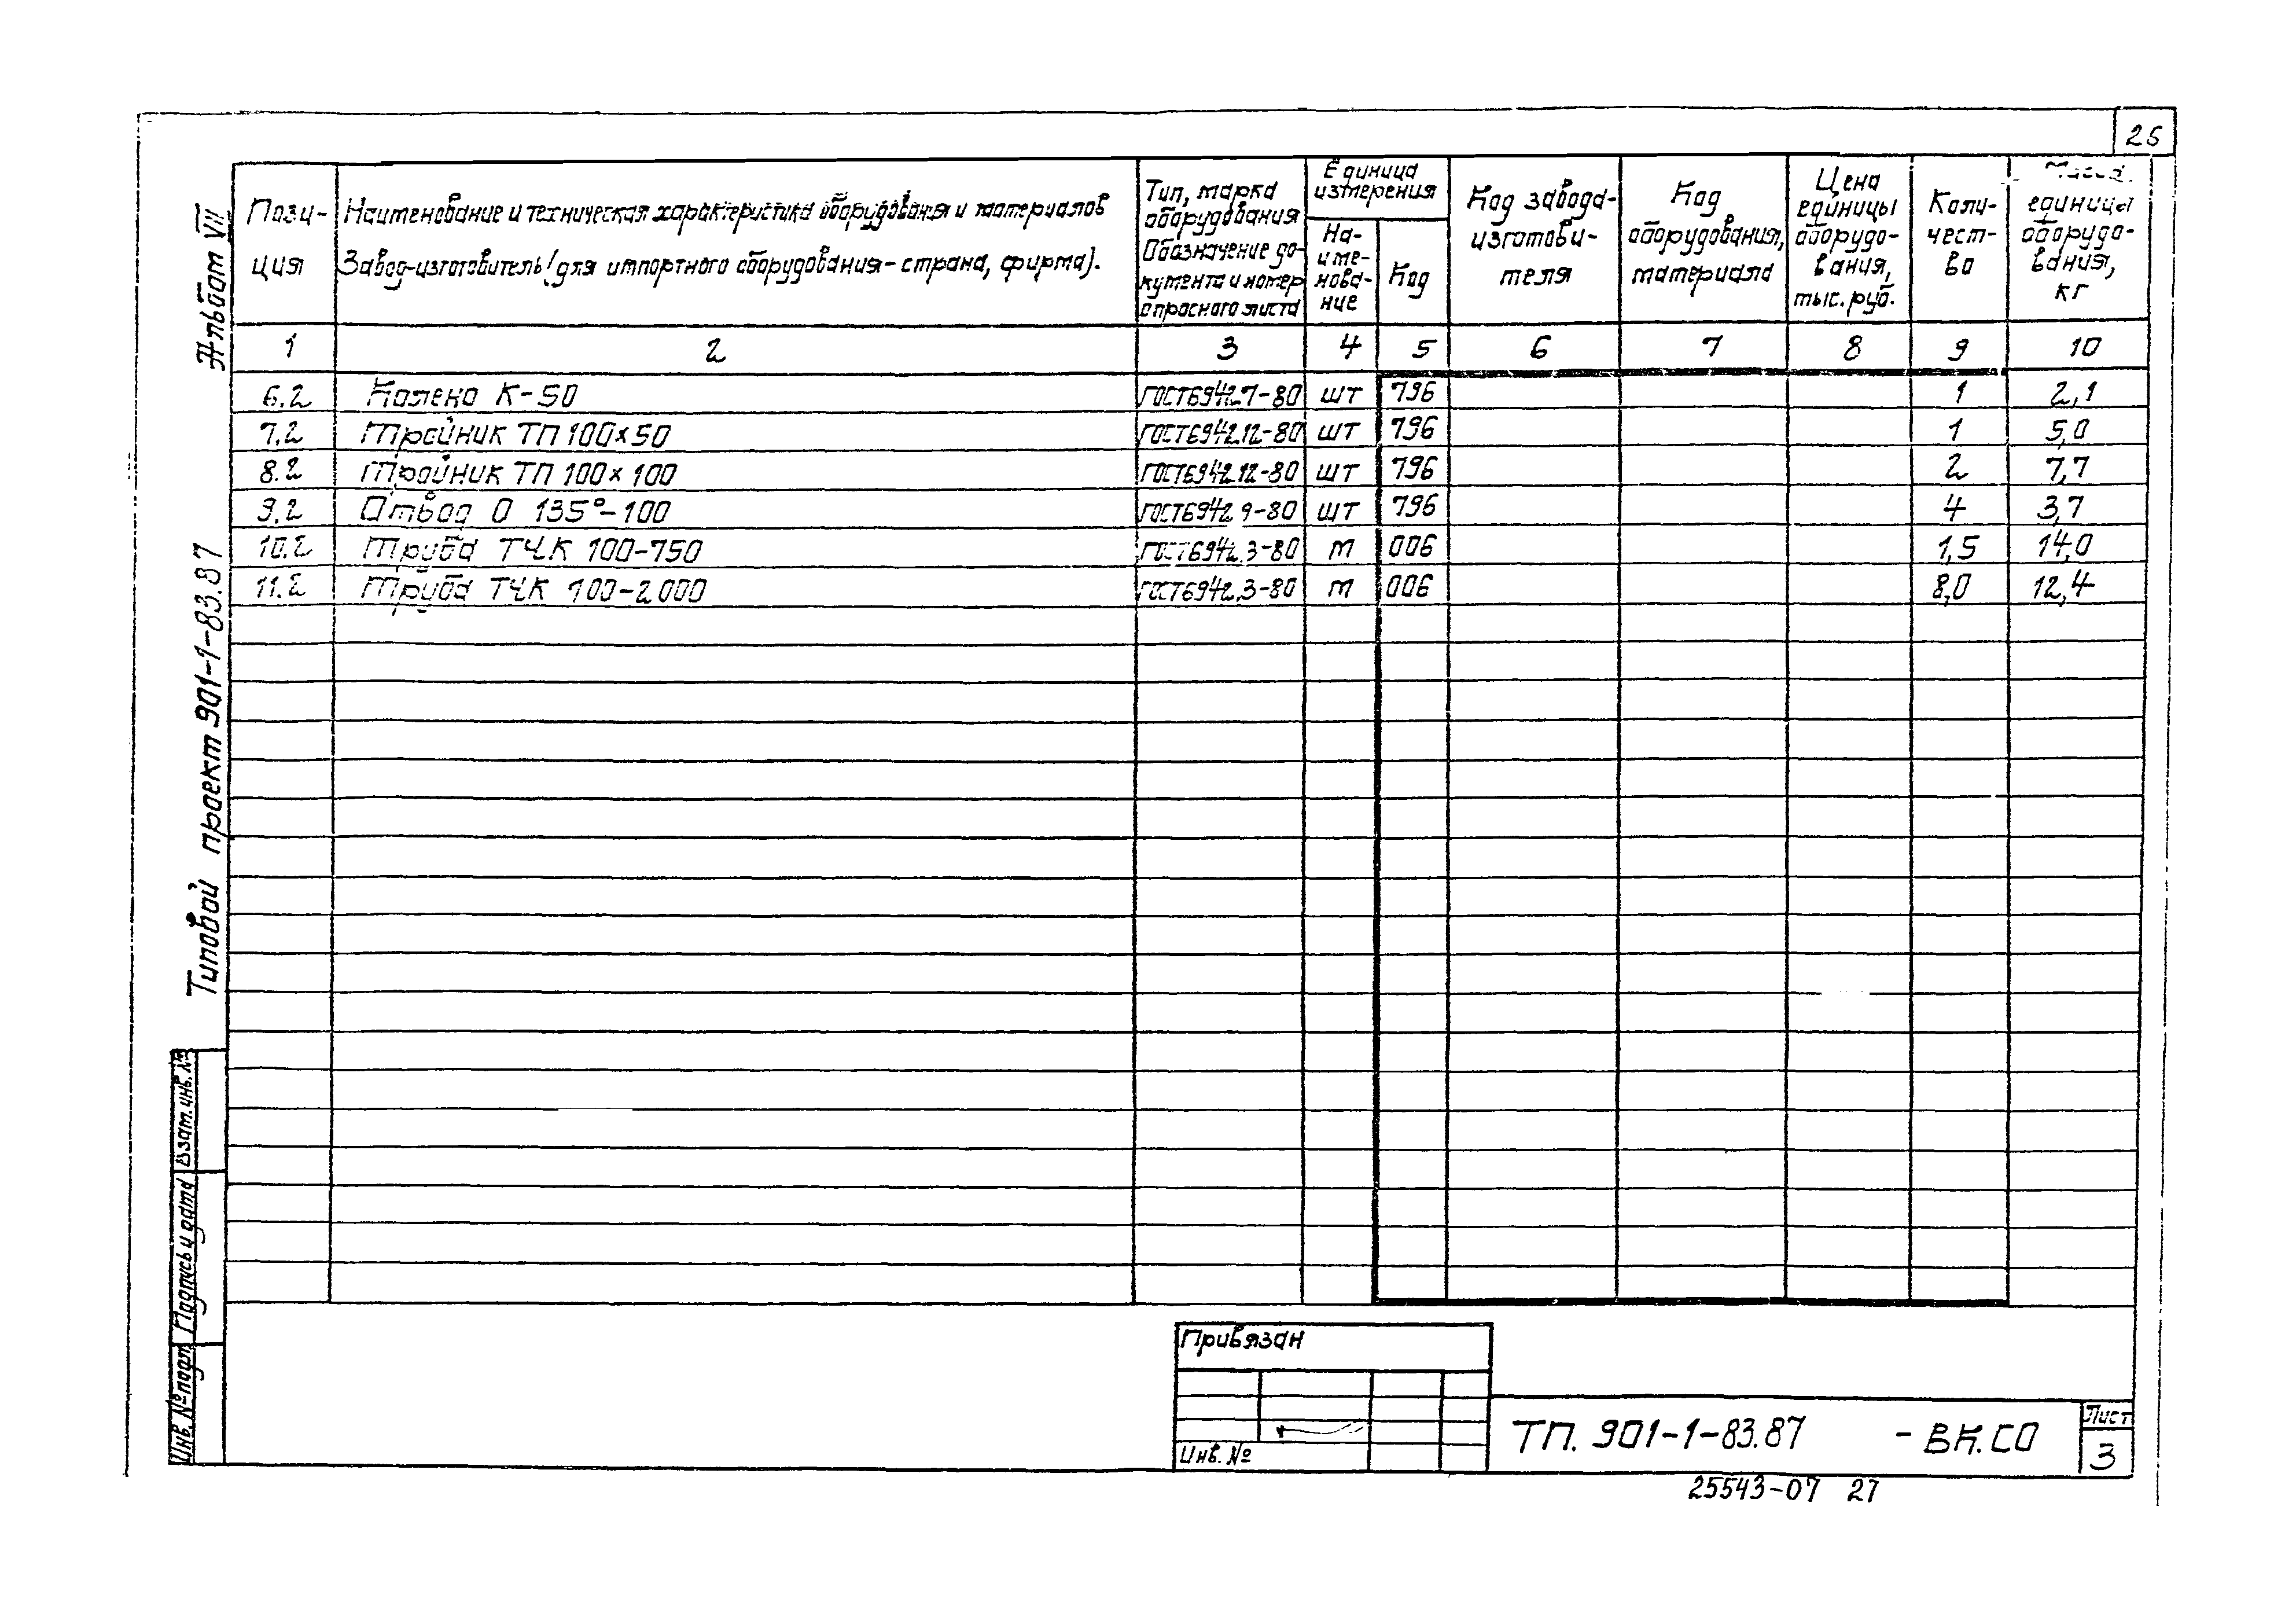 26
Альбом VII
Типовой проект 901-1-83.87
Пози-
ция
Наименование и техническая характеристика оборудования и материалов
Завод-изготовитель (для импортного оборудования - страна, фирма).
Тип, марка
оборудования
Обозначение до-
кумента и номер
опросного листа
Единица
измерения
На-
име-
нова-
ние
Код
Код завода-
изготови-
теля
Код
оборудования,
материала
Цена
единицы
оборудо-
вания,
тыс. руб.
Коли-
чест-
во
Масса
единицы
оборудо-
вания,
кг
1 2 3 4 5 6 7 8 9 10
6.2 Колено К-50 ГОСТ6942.7-80 шт 796 1 2,1
7.2 Тройник ТП 100×50 ГОСТ6942.12-80 шт 796 1 5,0
8.2 Тройник ТП 100×100 ГОСТ6942.12-80 шт 796 2 7,7
9.2 Отвод О 135°-100 ГОСТ6942.9-80 шт 796 4 3,7
10.2 Труба ТЧК 100-750 ГОСТ6942.3-80 м 006 1,5 14,0
11.2 Труба ТЧК 100-2000 ГОСТ6942.3-80 м 006 8,0 12,4
Взам. инв. №
Подпись и дата
Инв. № подл
Привязан
Инв. №
ТП. 901-1-83.87 - ВК.СО
Лист
3
25543-07 27